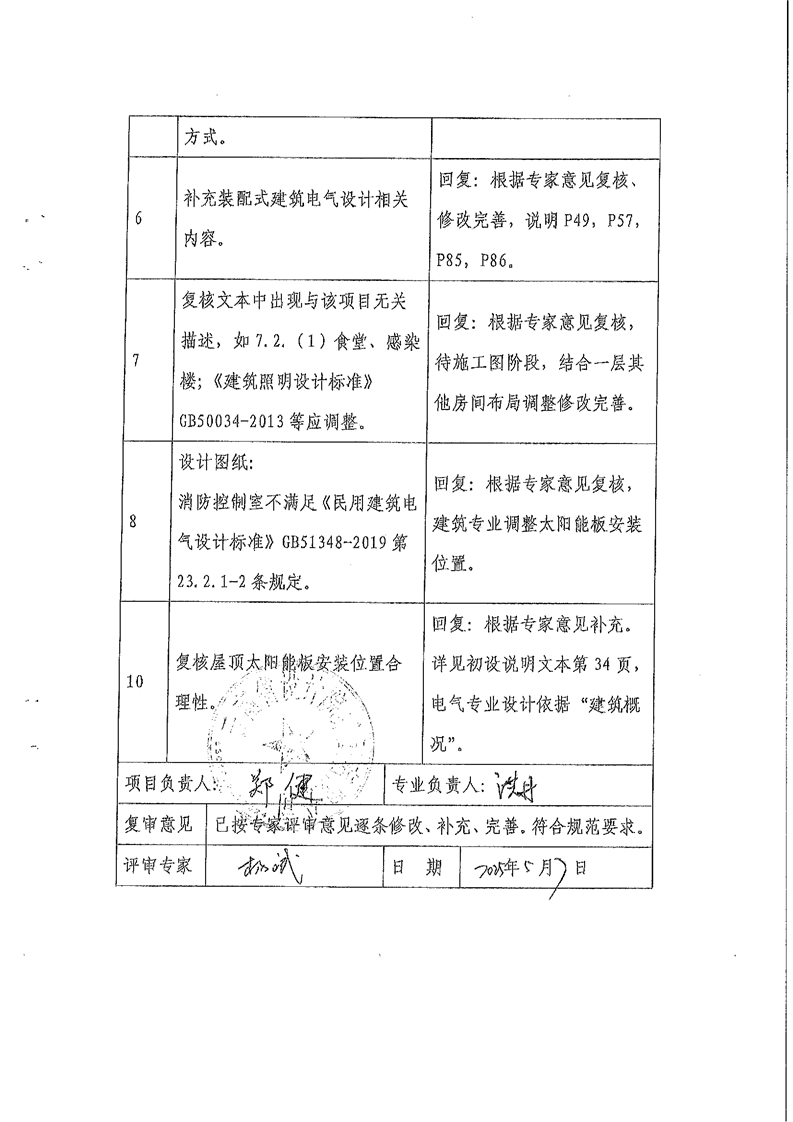 方式。
6
补充装配式建筑电气设计相关
内容。
回复：根据专家意见复核、
修改完善，说明 P49，P57，
P85，P86。
7
复核文本中出现与该项目无关
描述，如 7.2.（1）食堂、感染
楼；《建筑照明设计标准》
GB50034-2013 等应调整。
回复：根据专家意见复核，
待施工图阶段，结合一层其
他房间布局调整修改完善。
8
设计图纸：
消防控制室不满足《民用建筑电
气设计标准》GB51348-2019 第
23.2.1-2 条规定。
回复：根据专家意见复核，
建筑专业调整太阳能板安装
位置。
10
复核屋顶太阳能板安装位置合
理性。
回复：根据专家意见补充。
详见初设说明文本第 34 页，
电气专业设计依据“建筑概
况”。
项目负责人：郑健
专业负责人：
复审意见
已按专家评审意见逐条修改、补充、完善。符合规范要求。
评审专家
日 期
2025年5月7日